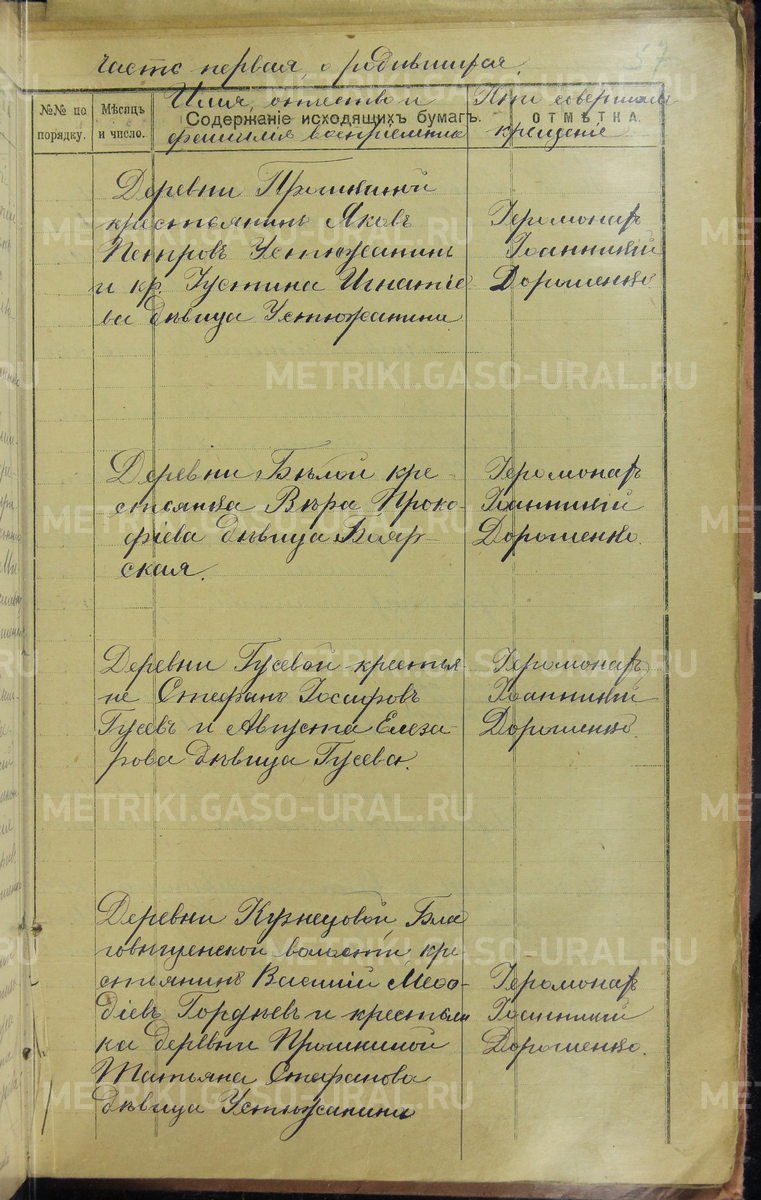 Часть первая, о родившихся.
57
№№ по порядку.
Мѣсяцъ и число.
Содержаніе исходящихъ бумагъ.
ОТМѢТКА.
Имя, отчество и
фамилія воспріемник
Кто совершалъ
крещеніе
Деревни Прошкиной
крестьянинъ Яковъ
Петровъ Устюжанинъ
и кр. Іустина Игнатіе
ва дѣвица Устюжанина
Іеромонахъ
Іоанникій
Дорошенко
Деревни Бѣлой кре-
стьянка Вѣра Проко-
фіева дѣвица Бояр-
ская.
Іеромонахъ
Іоанникій
Дорошенко.
Деревни Гусевой крестья-
не Стефанъ Іосифовъ
Гусевъ и Августа Елеза-
рова дѣвица Гусева.
Іеромонахъ
Іоанникій
Дорошенко.
Деревни Кузнецовой, Бла
говѣщенской волости, кре
стьянинъ Василій Меѳо-
діевъ Гордѣевъ и крестьян
ка деревни Прошкиной
Татьяна Стефанова
дѣвица Устюжанина
Іеромонахъ
Іоанникій
Дорошенко.
METRIKI.GASO-URAL.RU